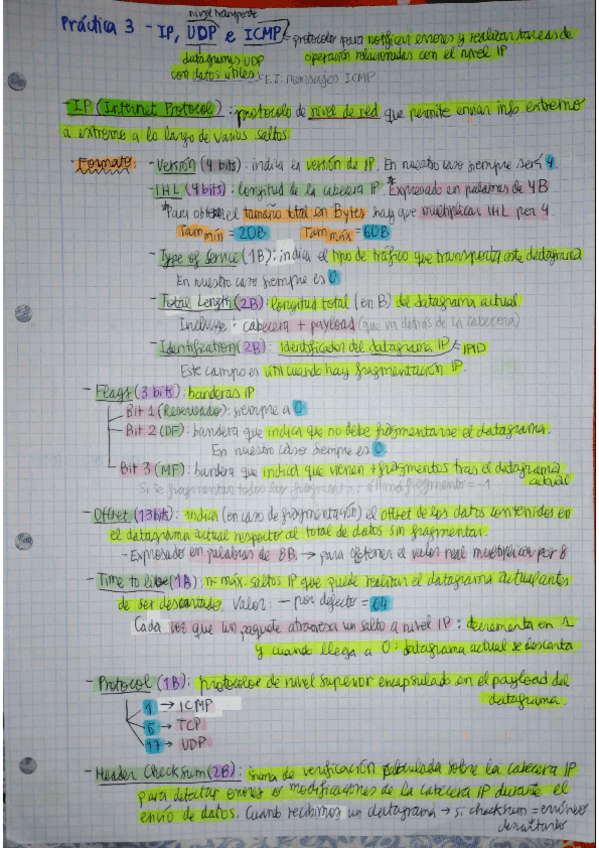 nivel transporte
Práctica 3 - IP, UDP e ICMP - protocolo para notificar errores y realizar tareas de
operación relacionadas con el nivel IP
datagramas UDP
con datos útiles
mensajes ICMP
- IP (Internet Protocol): protocolo de nivel de red que permite enviar info extremo
a extremo a lo largo de varios saltos
- Formato: - Versión (4 bits): indica la versión de IP. En nuestro caso siempre será 4.
- IHL (4 bits): longitud de la cabecera IP *Expresado en palabras de 4B
*Para obtener el tamaño total en Bytes hay que multiplicar IHL por 4.
Tam mín = 20B Tam máx = 60B
- Type of Service (1B): indica el tipo de tráfico que transporta este datagrama
En nuestro caso siempre es 0
- Total Length (2B): longitud total (en B) del datagrama actual
Incluye: cabecera + payload (que va detrás de la cabecera)
- Identification (2B): identificador del datagrama IP IPID
Este campo es útil cuando hay fragmentación IP.
- Flags (3 bits): banderas IP
- Bit 1 (Reservado): siempre a 0
- Bit 2 (DF): bandera que indica que no debe fragmentarse el datagrama.
En nuestro caso siempre es 0
- Bit 3 (MF): bandera que indica que vienen + fragmentos tras el datagrama
actual
- Offset (13 bits): indica (en caso de fragmentación) el offset de los datos contenidos en
el datagrama actual respecto al total de datos sin fragmentar.
- Expresado en palabras de 8B → para obtener el valor real multiplicar por 8
- Time to live (1B): nº máx. saltos IP que puede realizar el datagrama actual antes
de ser descartado. Valor: - por defecto = 64
Cada vez que un paquete atraviesa un salto a nivel IP: decrementa en 1
y cuando llega a 0: datagrama actual se descarta
- Protocol (1B): protocolos de nivel superior encapsulado en el payload del
datagrama.
1 → ICMP
6 → TCP
17 → UDP
- Header Checksum (2B): suma de verificación calculada sobre la cabecera IP
para detectar errores o modificaciones de la cabecera IP durante el
envío de datos. Cuando recibimos un datagrama → si checksum = erróneo
descartarlo